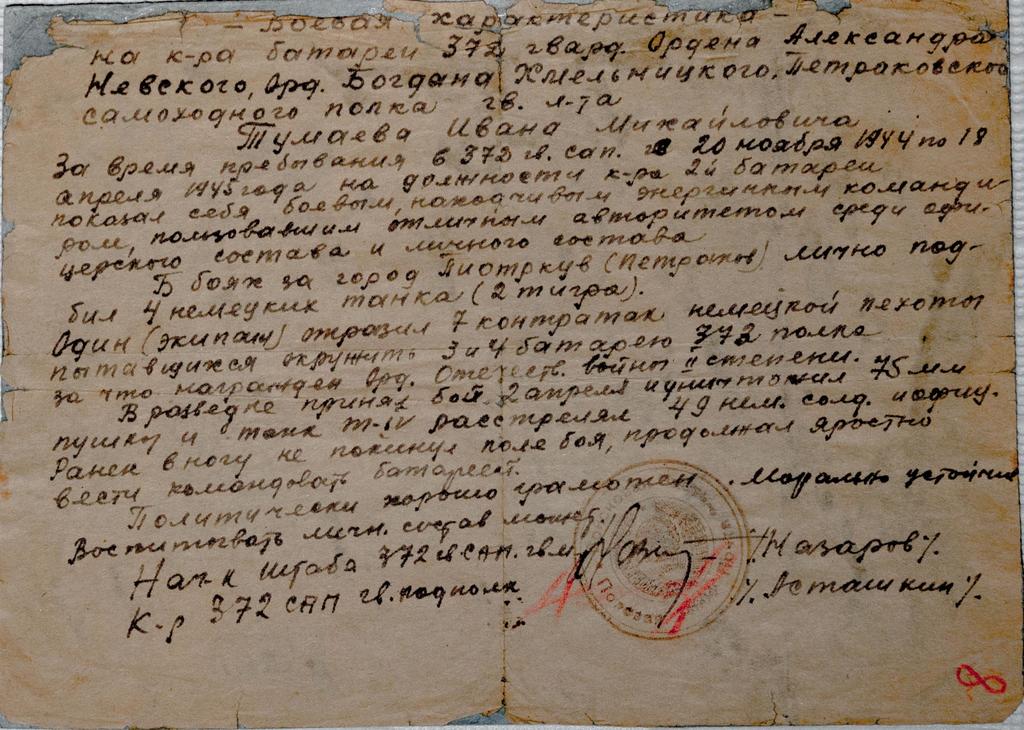 - Боевая характеристика -
на к-ра батареи 372 гвард. Ордена Александра
Невского, Орд. Богдана Хмельницкого, Петраковского
самоходного полка гв. л-та
Тумаева Ивана Михайловича
За время пребывания в 372 гв. сап. с 20 ноября 1944 по 18
апреля 1945 года на должности к-ра 2й батареи
показал себя боевым, находчивым энергичным команди-
ром, пользовавшим отличным авторитетом среди офи-
церского состава и личного состава
В боях за город Пиотркув (Петраков) лично под-
бил 4 немецких танка (2 тигра).
Один (экипаж) отразил 7 контратак немецкой пехоты
пытавшихся окружить 3 и 4 батарею 372 полка
за что награжден Орд. Отечеств. войны II степени.
В разведке принял бой 2 апреля и уничтожил 75 мм
пушку и танк T-IV расстрелял 49 нем. солд. и офиц.
Ранен в ногу не покинул поле боя, продолжал яростно
вести командовать батареей.
Политически хорошо грамотен. Морально устойчив
Воспитывать личн. состав может.
Нач-к штаба 372 гв САП. гв. м /Назаров/.
К-р 372 САП гв. подполк. /Асташкин/.
Полевая
8